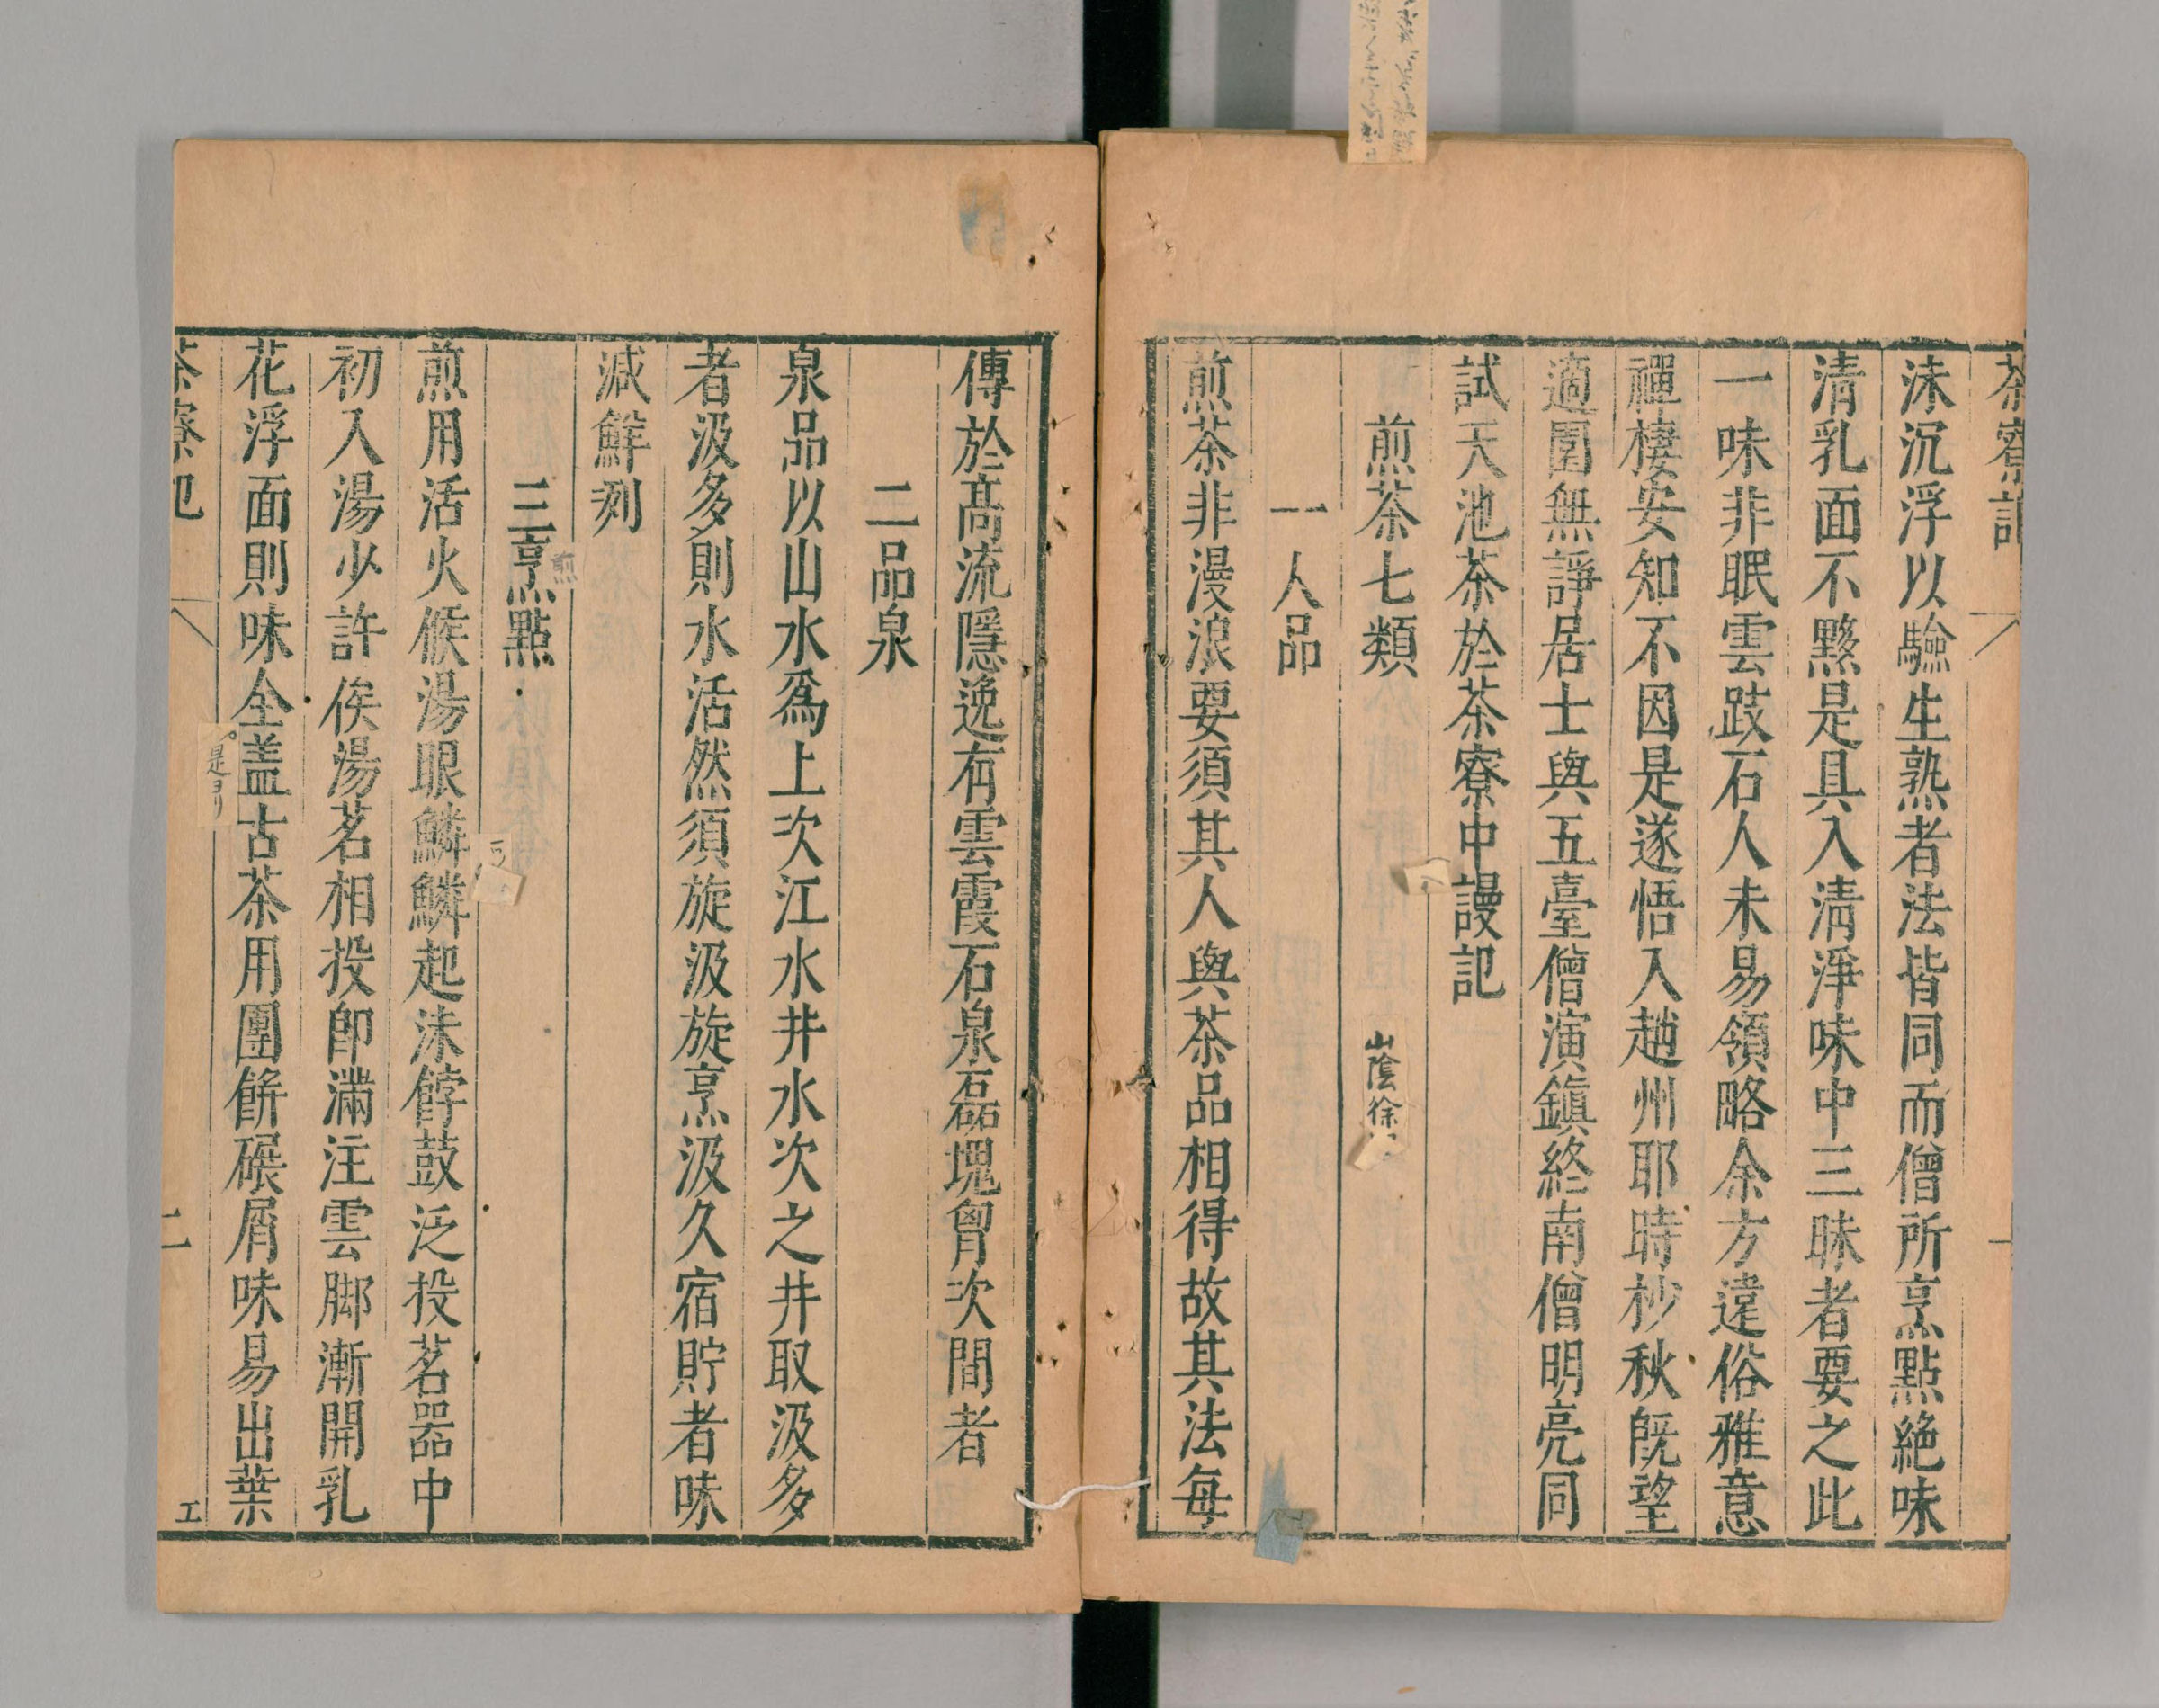 茶寮記
一
沫沉浮以驗生熟者法皆同而僧所烹點絶味
清乳面不黟是具入清淨味中三昧者要之此
一味非眠雲跂石人未易領略余方違俗雅意
禪棲安知不因是遂悟入趙州耶時杪秋既望
適園無諍居士與五臺僧演鎮終南僧明亮同
試天池茶於茶寮中謾記
煎茶七類
山陰徐
一人品
煎茶非漫浪要須其人與茶品相得故其法每
傳於高流隱逸有雲霞石泉磊塊胷次間者
二品泉
泉品以山水爲上次江水井水次之井取汲多
者汲多則水活然須旋汲旋烹汲久宿貯者味
減鮮冽
三烹點
煎
煎用活火候湯眼鱗鱗起沫餑鼓泛投茗器中
初入湯少許俟湯茗相投卽滿注雲脚漸開乳
花浮面則味全盖古茶用團餅碾屑味易出葉
是ヨリ
茶寮記
二
工